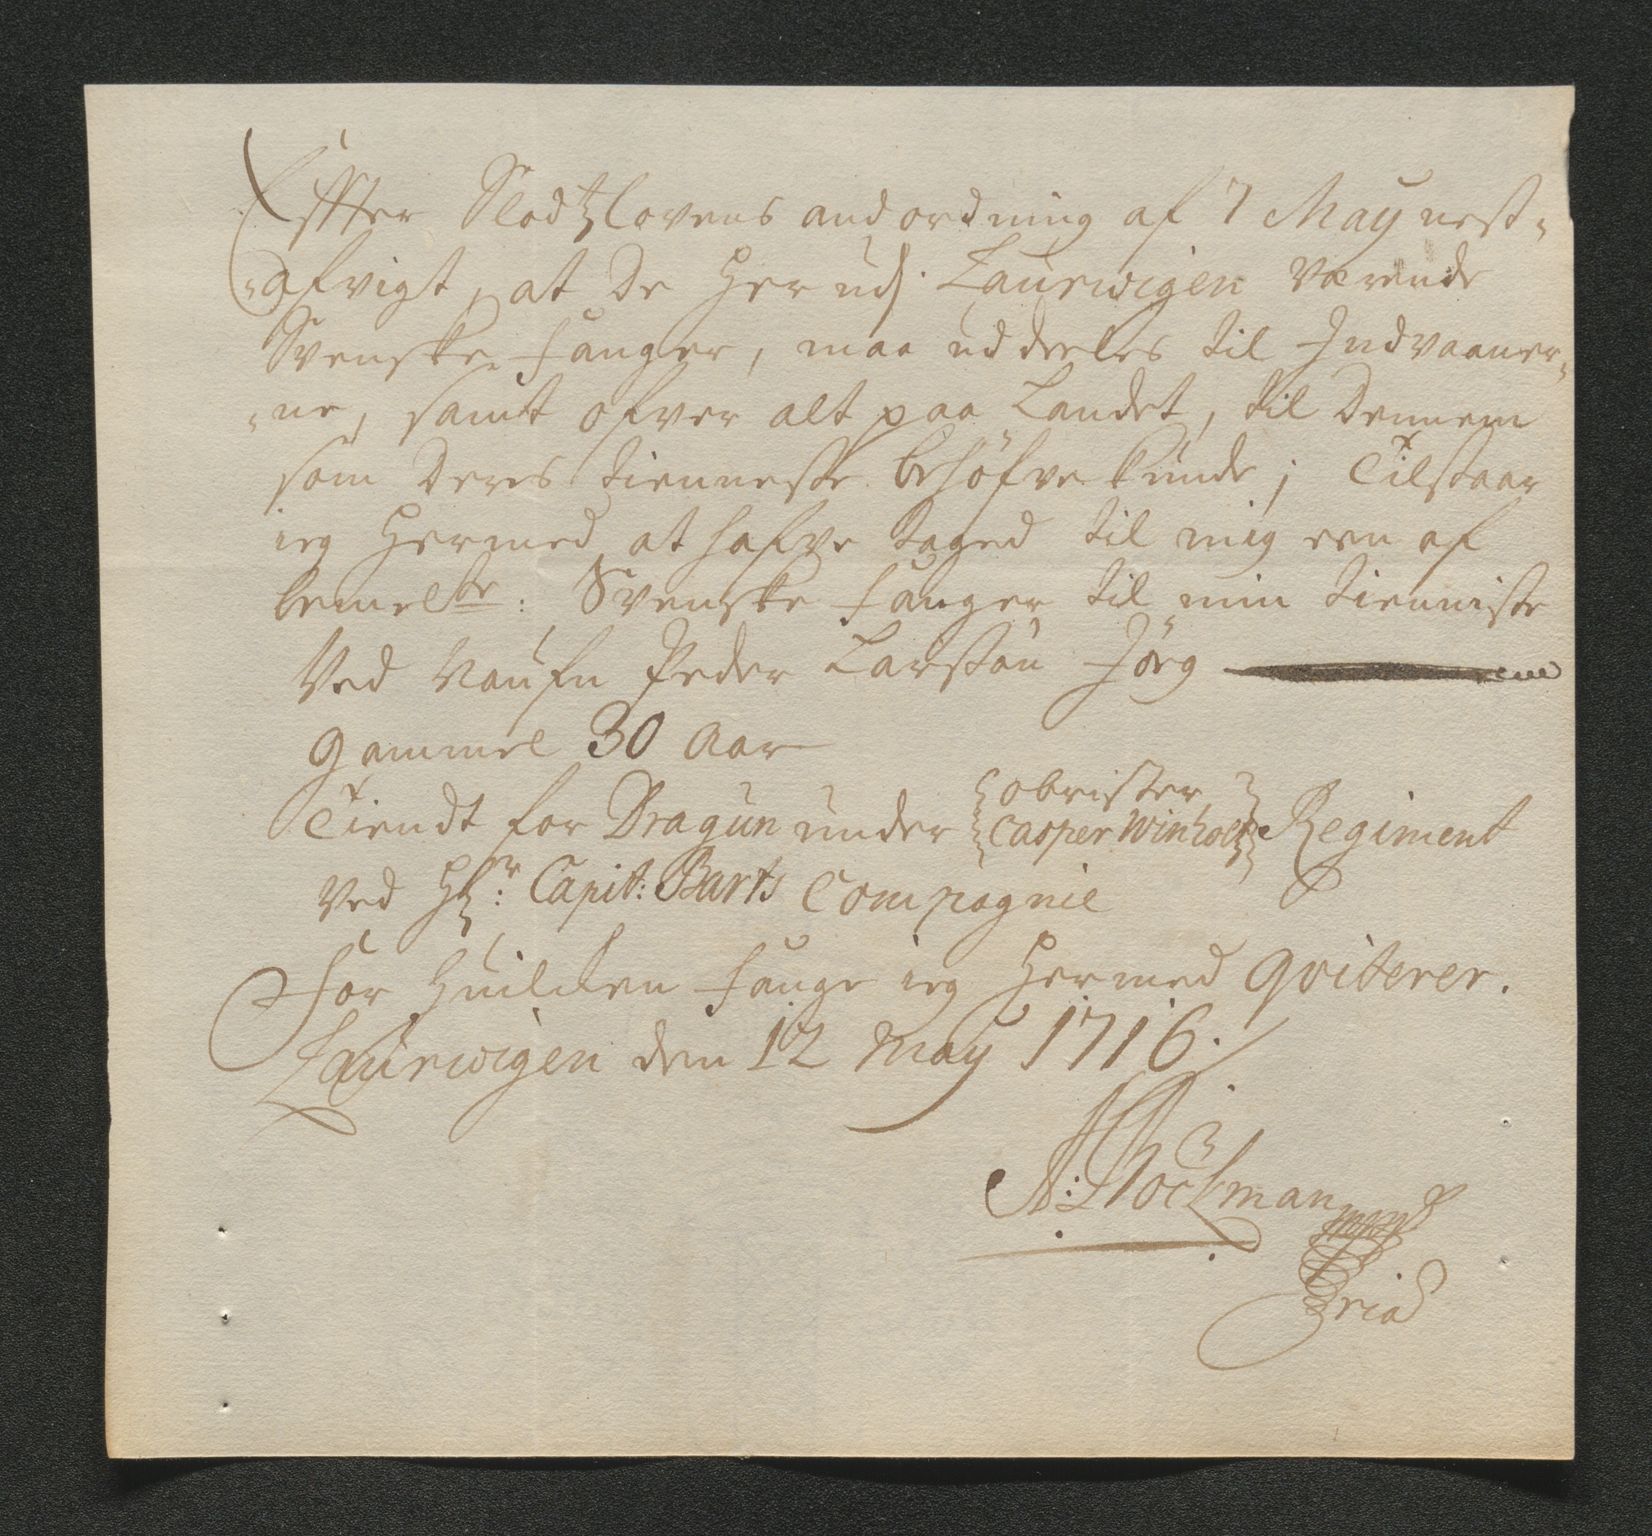 Effter Slodtzlovens andordning af 7 May nest-
-afvigt, at De Her udj Laurwigen værende
Svenske fanger, maa uddeeles til Indvaaner-
-ne, samt ofver alt paa Landet, til Dennem
som Deres tienneste behöfve kunde; Tilstaar
ieg Hermed, at hafve taged til mig een af
bemelte: Svenske fanger til min tienniste
Ved Naufn Peder Larsson
gammel 30 Aar
Tiendt for Dragun under Obrister Casper Winholtz Regiment
Ved Hr: Capit: Barts Compagnie
For huilcken fange ieg Hermed qviterer.
Laurwigen den 12 May 1716.